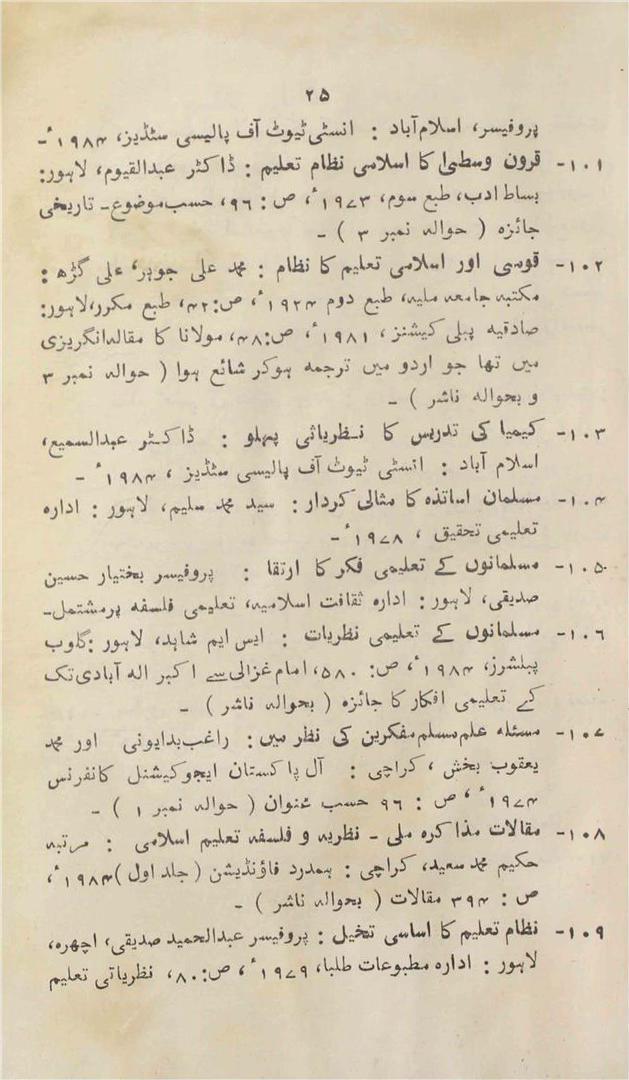 ۲۵
پروفیسر، اسلام آباد : انسٹی ٹیوٹ آف پالیسی سٹڈیز، ۱۹۸۴ء۔
۱۰۱۔ قرون وسطیٰ کا اسلامی نظام تعلیم : ڈاکٹر عبدالقیوم، لاہور:
بساط ادب، طبع سوم، ۱۹۷۳ء، ص : ۹۶، حسب موضوع۔ تاریخی
جائزہ ( حوالہ نمبر ۳ ) ۔
۱۰۲۔ قومی اور اسلامی تعلیم کا نظام : محمد علی جوہر، علی گڑھ :
مکتبہ جامعہ ملیہ، طبع دوم ۱۹۲۴ء، ص:۴۲، طبع مکرر،لاہور:
صادقیہ پبلی کیشنز، ۱۹۸۱ء، ص:۴۸، مولانا کا مقالہ انگریزی
میں تھا جو اردو میں ترجمہ ہوکر شائع ہوا ( حوالہ نمبر ۳
و بحوالہ ناشر ) ۔
۱۰۳۔ کیمیا کی تدریس کا نظریاتی پہلو : ڈاکٹر عبدالسمیع،
اسلام آباد : انسٹی ٹیوٹ آف پالیسی سٹڈیز ، ۱۹۸۴ء ۔
۱۰۴۔ مسلمان اساتذہ کا مثالی کردار : سید محمد سلیم، لاہور : ادارہ
تعلیمی تحقیق ، ۱۹۷۸ء۔
۱۰۵۔ مسلمانوں کے تعلیمی فکر کا ارتقا : پروفیسر بختیار حسین
صدیقی، لاہور : ادارہ ثقافت اسلامیہ، تعلیمی فلسفہ پرمشتمل۔
۱۰۶۔ مسلمانوں کے تعلیمی نظریات : ایس ایم شاہد، لاہور :گلوب
پبلشرز، ۱۹۸۴ء، ص: ۵۸۰، امام غزالی سے اکبر الہ آبادی تک
کے تعلیمی افکار کا جائزہ ( بحوالہ ناشر ) ۔
۱۰۷۔ مسئلہ علم مسلم مفکرین کی نظر میں : راغب بدایونی اور محمد
یعقوب بخش ، کراچی : آل پاکستان ایجوکیشنل کانفرنس
۱۹۷۴ء ، ص : ۹۶ حسب عنوان ( حوالہ نمبر ۱ ) ۔
۱۰۸۔ مقالات مذاکرہ ملی ۔ نظریہ و فلسفہ تعلیم اسلامی : مرتبہ
حکیم محمد سعید، کراچی : ہمدرد فاؤنڈیشن ( جلد اول ) ۱۹۸۴ء،
ص : ۳۹۴ مقالات ( بحوالہ ناشر ) ۔
۱۰۹۔ نظام تعلیم کا اساسی تخیل : پروفیسر عبدالحمید صدیقی، اچھرہ،
لاہور : ادارہ مطبوعات طلبا، ۱۹۷۹ء ، ص:۸۰، نظریاتی تعلیم